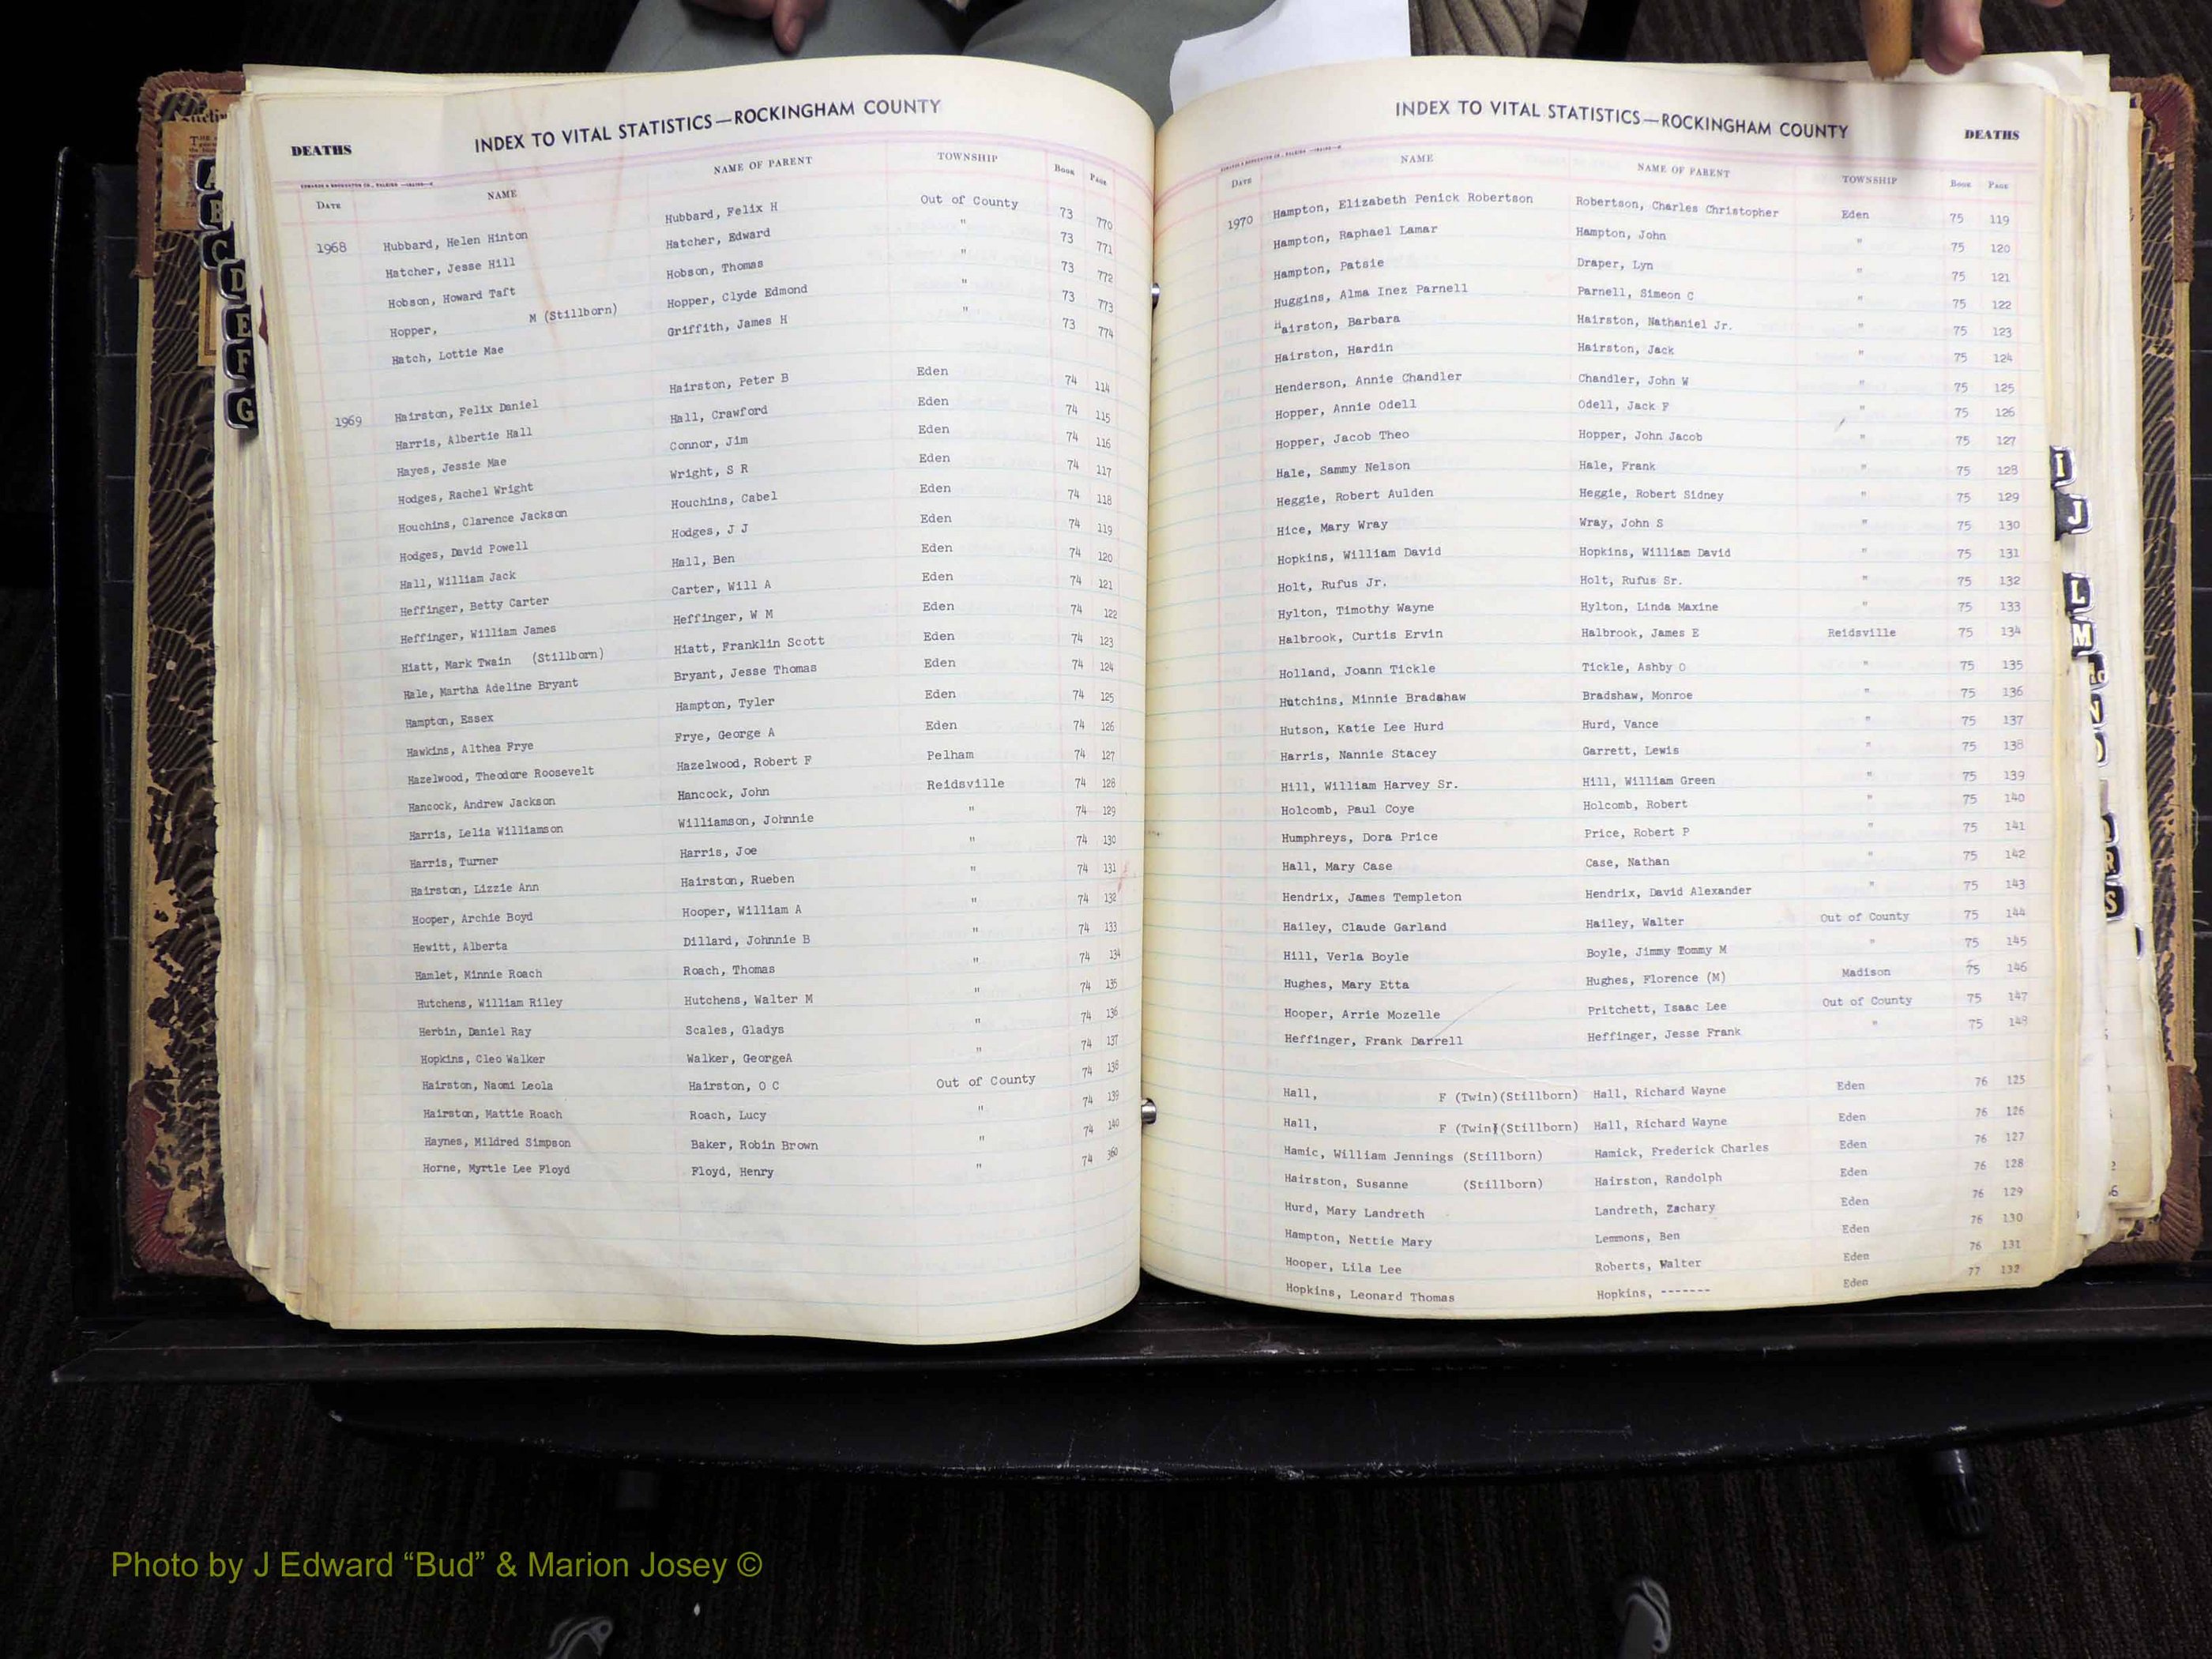 DEATHS INDEX TO VITAL STATISTICS—ROCKINGHAM COUNTY
DATE NAME NAME OF PARENT TOWNSHIP BOOK PAGE
1968 Hubbard, Helen Hinton Hubbard, Felix H Out of County 73 770
Hatcher, Jesse Hill Hatcher, Edward " 73 771
Hobson, Howard Taft Hobson, Thomas " 73 772
Hopper, M (Stillborn) Hopper, Clyde Edmond " 73 773
Hatch, Lottie Mae Griffith, James H " 73 774
1969 Hairston, Felix Daniel Hairston, Peter B Eden 74 114
Harris, Albertie Hall Hall, Crawford Eden 74 115
Hayes, Jessie Mae Connor, Jim Eden 74 116
Hodges, Rachel Wright Wright, S R Eden 74 117
Houchins, Clarence Jackson Houchins, Cabel Eden 74 118
Hodges, David Powell Hodges, J J Eden 74 119
Hall, William Jack Hall, Ben Eden 74 120
Heffinger, Betty Carter Carter, Will A Eden 74 121
Heffinger, William James Heffinger, W M Eden 74 122
Hiatt, Mark Twain (Stillborn) Hiatt, Franklin Scott Eden 74 123
Hale, Martha Adeline Bryant Bryant, Jesse Thomas Eden 74 124
Hampton, Essex Hampton, Tyler Eden 74 125
Hawkins, Althea Frye Frye, George A Eden 74 126
Hazelwood, Theodore Roosevelt Hazelwood, Robert F Pelham 74 127
Hancock, Andrew Jackson Hancock, John Reidsville 74 128
Harris, Lelia Williamson Williamson, Johnnie " 74 129
Harris, Turner Harris, Joe " 74 130
Hairston, Lizzie Ann Hairston, Rueben " 74 131
Hooper, Archie Boyd Hooper, William A " 74 132
Hewitt, Alberta Dillard, Johnnie B " 74 133
Hamlet, Minnie Roach Roach, Thomas " 74 134
Hutchens, William Riley Hutchens, Walter M " 74 135
Herbin, Daniel Ray Scales, Gladys " 74 136
Hopkins, Cleo Walker Walker, GeorgeA " 74 137
Hairston, Naomi Leola Hairston, O C Out of County 74 138
Hairston, Mattie Roach Roach, Lucy " 74 139
Haynes, Mildred Simpson Baker, Robin Brown " 74 140
Horne, Myrtle Lee Floyd Floyd, Henry " 74 360
INDEX TO VITAL STATISTICS—ROCKINGHAM COUNTY DEATHS
DATE NAME NAME OF PARENT TOWNSHIP BOOK PAGE
1970 Hampton, Elizabeth Penick Robertson Robertson, Charles Christopher Eden 75 119
Hampton, Raphael Lamar Hampton, John " 75 120
Hampton, Patsie Draper, Lyn " 75 121
Huggins, Alma Inez Parnell Parnell, Simeon C " 75 122
Hairston, Barbara Hairston, Nathaniel Jr. " 75 123
Hairston, Hardin Hairston, Jack " 75 124
Henderson, Annie Chandler Chandler, John W " 75 125
Hopper, Annie Odell Odell, Jack F " 75 126
Hopper, Jacob Theo Hopper, John Jacob " 75 127
Hale, Sammy Nelson Hale, Frank " 75 128
Heggie, Robert Aulden Heggie, Robert Sidney " 75 129
Hice, Mary Wray Wray, John S " 75 130
Hopkins, William David Hopkins, William David " 75 131
Holt, Rufus Jr. Holt, Rufus Sr. " 75 132
Hylton, Timothy Wayne Hylton, Linda Maxine " 75 133
Halbrook, Curtis Ervin Halbrook, James E Reidsville 75 134
Holland, Joann Tickle Tickle, Ashby O " 75 135
Hutchins, Minnie Bradshaw Bradshaw, Monroe " 75 136
Hutson, Katie Lee Hurd Hurd, Vance " 75 137
Harris, Nannie Stacey Garrett, Lewis " 75 138
Hill, William Harvey Sr. Hill, William Green " 75 139
Holcomb, Paul Coye Holcomb, Robert " 75 140
Humphreys, Dora Price Price, Robert P " 75 141
Hall, Mary Case Case, Nathan " 75 142
Hendrix, James Templeton Hendrix, David Alexander " 75 143
Hailey, Claude Garland Hailey, Walter Out of County 75 144
Hill, Verla Boyle Boyle, Jimmy Tommy M " 75 145
Hughes, Mary Etta Hughes, Florence (M) Madison 75 146
Hooper, Arrie Mozelle Pritchett, Isaac Lee Out of County 75 147
Heffinger, Frank Darrell Heffinger, Jesse Frank " 75 148
Hall, F (Twin)(Stillborn) Hall, Richard Wayne Eden 76 125
Hall, F (Twin)(Stillborn) Hall, Richard Wayne Eden 76 126
Hamic, William Jennings (Stillborn) Hamick, Frederick Charles Eden 76 127
Hairston, Susanne (Stillborn) Hairston, Randolph Eden 76 128
Hurd, Mary Landreth Landreth, Zachary Eden 76 129
Hampton, Nettie Mary Lemmons, Ben Eden 76 130
Hooper, Lila Lee Roberts, Walter Eden 76 131
Hopkins, Leonard Thomas Hopkins, ------- Eden 77 132
A
B
C
D
E
F
G
I
J
L
M
N
R
S
Photo by J Edward “Bud” & Marion Josey ©